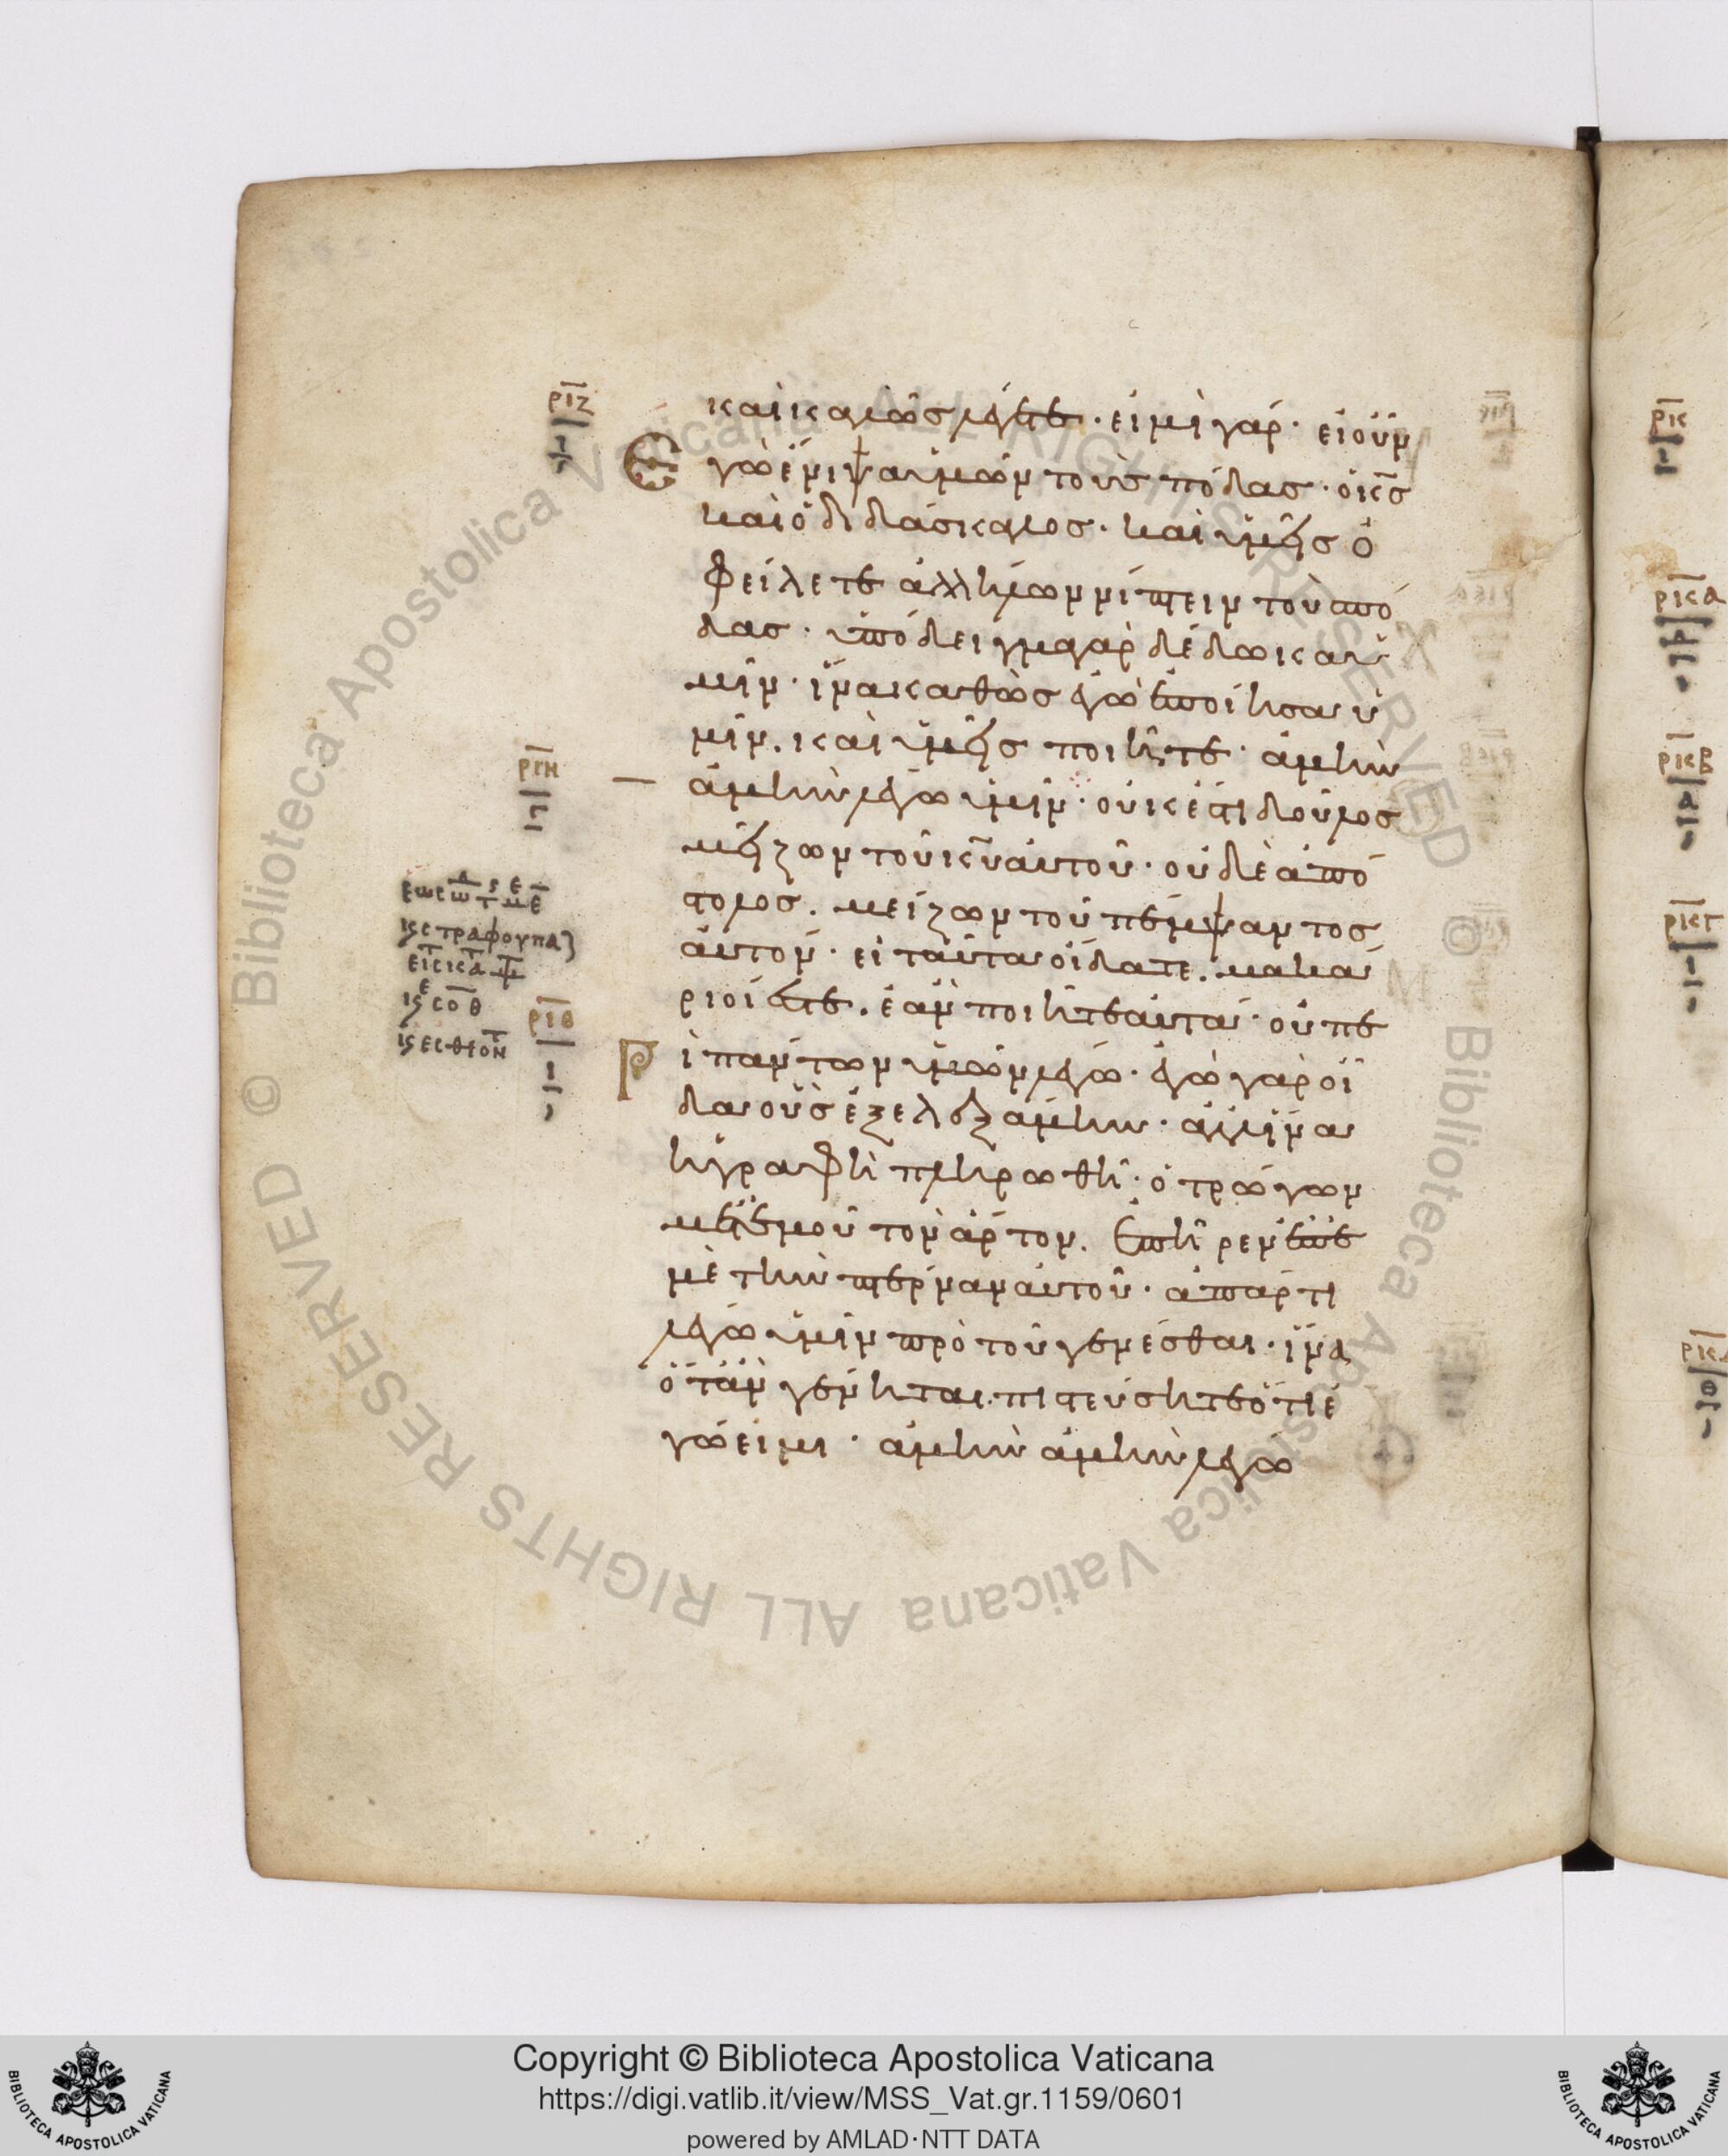 ριζ
καὶ καλῶς λέγετε· εἰμὶ γάρ· εἰ οὖν
Ἐγὼ ἔνιψα ὑμῶν τοὺς πόδας· ὁ κ̅ς
καὶ ὁ διδάσκαλος· καὶ ὑμεῖς ὀ
φείλετε ἀλλήλων νίπτειν τοὺσ πό
δας· ὑπόδειγμα γὰρ δέδωκα ὑ
μῖν· ἵνα καθὼς ἐγὼ ἐποίησα ὑ
μῖν. καὶ ὑμεῖς ποιῆτε· ἀμὴν
ριη
ἀμὴν λέγω ὑμῖν· οὐκ ἔστι δοῦλος
μείζων τοῦ κ̅υ αὐτοῦ· οὐδὲ ἀπό
στολος. μείζων τοῦ πέμψαντος
αὐτόν· εἰ ταῦτα οἴδατε. μακά
ριοί ἐστε. ἐὰν ποιῆτε αὐτά· οὐ πε
ριθ
Ρὶ πάντων ὑμῶν λέγω· ἐγὼ γὰρ οἶ
δα οὓς ἐξελεξάμην· ἀλλ' ἵνα
ἡ γραφὴ πληρωθῆ· ὁ τρώγων
μετ' ἐμοῦ τὸν ἄρτον. ἐπῆρεν ἐπ' ἐ
μὲ τὴν πτέρναν αὐτοῦ· ἀπάρτι
λέγω ὑμῖν πρὸ τοῦ γενέσθαι· ἵνα
ὅταν γένηται. πιστεύσητε ὅτι ἐ
γώ εἰμι· ἀμὴν ἀμὴν λέγω
ρκ
ρκα
ρκβ
ρκγ
Copyright © Biblioteca Apostolica Vaticana
https://digi.vatlib.it/view/MSS_Vat.gr.1159/0601
powered by AMLAD·NTT DATA
BIBLIOTECA APOSTOLICA VATICANA
BIBLIOTECA APOSTOLICA VATICANA
© Biblioteca Apostolica Vaticana ALL RIGHTS RESERVED
© Biblioteca Apostolica Vaticana ALL RIGHTS RESERVED